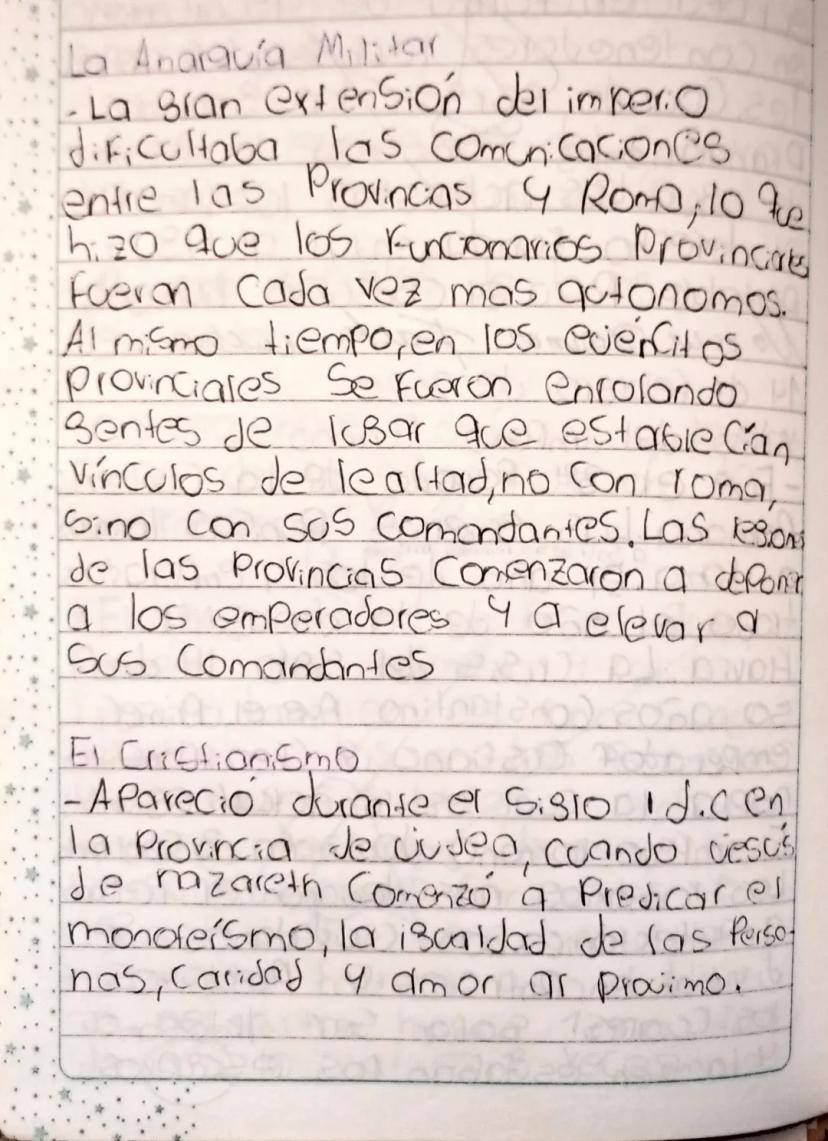 La Anarquía Militar
- La gran extensión del imperio
dificultaba las comunicaciones
entre las Provincias y Roma, lo que
hizo que los funcionarios Provinciales
fueran cada vez mas autonomos.
Al mismo tiempo, en los ejércitos
provinciales se fueron enrolando
gentes de lugar que establecían
vínculos de lealtad, no con roma,
sino con sus comandantes. Las legions
de las Provincias comenzaron a deponer
a los emperadores y a elevar a
sus comandantes
El Cristianismo
- Apareció durante el siglo I d.C en
la Provincia de Judea, cuando Jesús
de nazareth comenzó a Predicar el
monoteísmo, la igualdad de las Perso-
nas, caridad y amor al proximo.